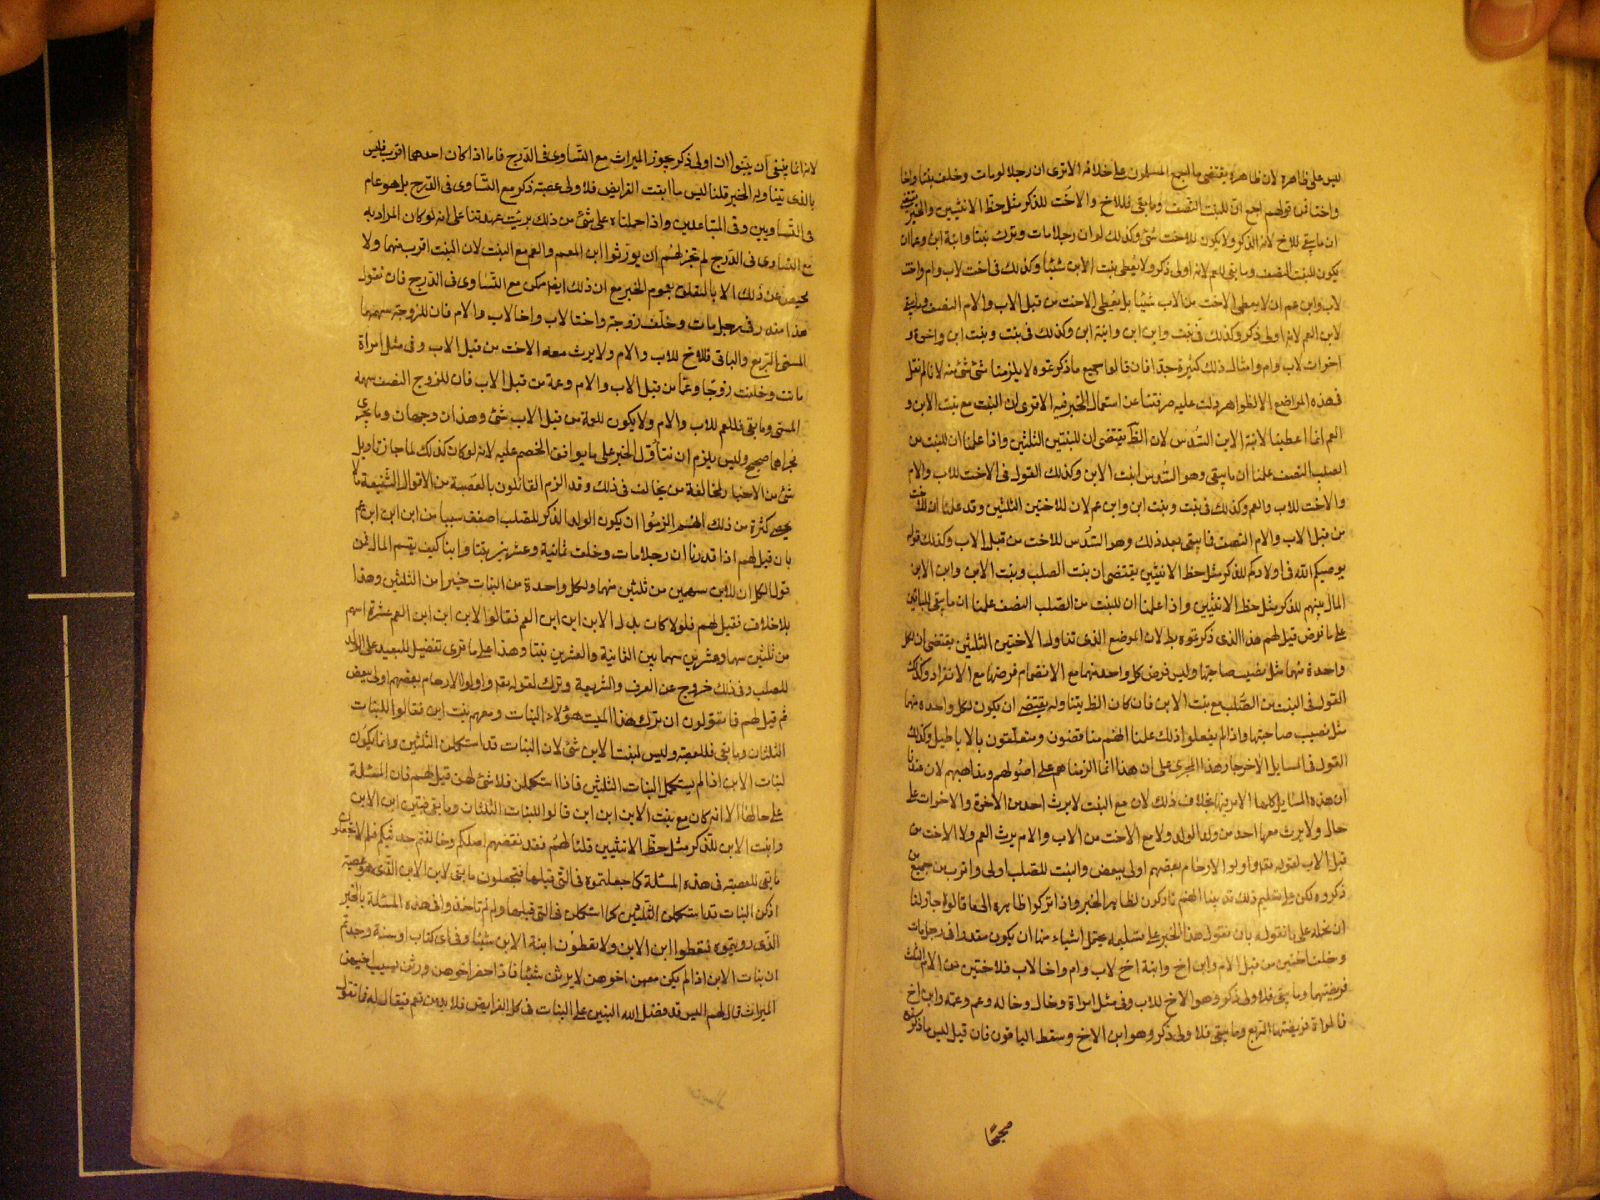 ليس على ظاهره لان ظاهره يقتضى ما اجمع المسلمون على خلافه الا ترى ان رجلا لو مات وخلف بنتا واخا
واختا فمن قولهم اجمع ان للبنت النصف وما بقى فللاخ والاخت للذكر مثل حظ الانثيين والخبر يقتضى
ان ما بقى للاخ لانه الذكر ولا يكون للاخت شئ وكذلك لو ان رجلا مات وترك بنتا وابنة ابن وعما ان
يكون للبنت النصف وما بقى للعم لانه اولى ذكر ولا يعطى بنت الابن شيئا وكذلك فى اخت لاب وام واخت
لاب وابن عم ان لا يعطى الاخت من الاب شيئا بل يعطى الاخت من قبل الاب والام النصف وما بقى
لابن العم لانه اولى ذكر وكذلك فى بنت وابن ابن وابنة ابن وكذلك فى بنت وبنت ابن واخوة و
اخوات لاب وام وامثال ذلك كثيرة جدا فان قالوا جميع ما ذكرتموه لا يلزمنا شئ منه لانا لم نقل
فى هذه المواضع الا لظواهر دلت عليه صرفتنا عن استعمال الخبر فيه الا ترى ان البنت مع بنت الابن و
العم انما اعطينا لابنة الابن السدس لان الظ يقتضى ان للبنتين الثلثين واذا علمنا ان للبنت من
الصلب النصف علمنا ان ما يبقى وهو السدس لبنت الابن وكذلك القول فى الاخت للاب والام
والاخت للاب والعم وكذلك فى بنت وبنت ابن وابن عم لان للاختين الثلثين وقد علمنا ان للاخت
من قبل الاب والام النصف فما يبقى بعد ذلك وهو السدس للاخت من قبل الاب وكذلك قوله
يوصيكم الله فى اولادكم للذكر مثل حظ الانثيين يقتضى ان بنت الصلب وبنت الابن وابن الابن
المال بينهم للذكر مثل حظ الانثيين واذا علمنا ان للبنت من الصلب النصف علمنا ان ما يبقى للباقين
على ما فرض قيل لهم هذا الذى ذكرتموه بط لان الموضع الذى تناول الاختين الثلثين يقتضى ان لكل
واحدة منهما مثل نصيب صاحبتها وليس فرض كل واحد منهما مع الانضمام فرضها مع الانفراد وكذلك
القول فى البنت من الصلب مع بنت الابن فان كان الظ يتناوله يقتضى ان يكون لكل واحدة منهما
مثل نصيب صاحبتها واذا لم يفعلوا ذلك علمنا انهم مناقضون ومتعلقون بالاباطيل وكذلك
القول فى المسايل الاخر جار هذا المجرى على ان هذا انما الزمناهم على اصولهم ومذاهبهم لان عندنا
ان هذه المسايل كلها الامر فيها بخلاف ذلك لان مع البنت لا يرث احد من الاخوة والاخوات على
حال ولا يرث معها احد من ولد الولد ولا مع الاخت من الاب والام يرث العم ولا الاخت من
قبل الاب لقوله تعالى واولوا الارحام بعضهم اولى ببعض والبنت للصلب اولى واقرب من جميع من
ذكروه لكن مع تسليم ذلك قد بينا انهم تاركون لظاهر الخبر واذا تركوا ظاهره الى ما قالوه جاز لنا
ان نحمله على ما نقوله بان نقول هذا الخبر على تسليمه يحتمل اشياء منها ان يكون مقدرا فى رجل مات
وخلف اختين من قبل الام وابن اخ وابنة اخ لاب وام واخا لاب فللاختين من الام الثلث
فريضتهما وما بقى فلاولى ذكر وهو الاخ للاب وفى مثل امراة وخال وخالة وعم وعمة وابن اخ
فالمراة فريضتها الربع وما بقى فلاولى ذكر وهو ابن الاخ وسقط الباقون فان قيل ليس ما ذكرتموه
صحيحا
لانه انما ينبغى ان يبينوا ان اولى ذكر يجوز الميراث مع التساوى فى الدرج فاما اذا كان احدهما اقرب فليس
بالذى يتناوله الخبر قلنا ليس ما ابقت الفرايض فلاولى عصبة ذكر مع التساوى فى الدرج بل هو عام
فى المتساويين وفى المتباعدين واذا حملناه على شئ من ذلك برئت عهدتنا على انه لو كان المراد به
مع التساوى فى الدرج لم يجز لهم ان يورثوا ابن العم والعم مع البنت لان البنت اقرب منهما ولا
محيص عن ذلك الا بالتعلق بعموم الخبر مع ان ذلك ايضا ممكن مع التساوى فى الدرج فان نقول
هذا مقدر فى رجل مات وخلف زوجة واختا لاب واخا لاب والام فان للزوجة سهمها
المسمى الربع والباقى فللاخ للاب والام ولا يرث معه الاخت من قبل الاب وفى مثل امراة
ماتت وخلفت زوجا وعما من قبل الاب والام وعمة من قبل الاب فان للزوج النصف سهمه
المسمى وما بقى فللعم للاب والام ولا يكون للعمة من قبل الاب شئ وهذان وجهان وما يجرى
مجراها صحيح وليس يلزم ان نتأول الخبر على ما يوافق الخصم عليه لانه لو كان كذلك لما جاز تاويل
شئ من الاخبار لمخالفة من يخالف فى ذلك وقد الزم القائلون بالعصبة من الاقوال الشنيعة ما لا
يحصى كثرة من ذلك انهم الزموا ان يكون الولد الذكر للصلب اضعف سببا من ابن ابن ابن عم
بان قيل لهم اذا قدرنا ان رجلا مات وخلف ثمانية وعشرين بنتا وابنا كيف يقسم المال فمن
قول الكل ان للابن سهمين من ثلثين سهما ولكل واحدة من البنات جزء من الثلثين وهذا
بلا خلاف فقيل لهم فلو كان بدل الابن ابن ابن العم فقالوا لابن ابن ابن العم عشرة اسهم
من ثلثين سهما وعشرين سهما بين الثمانية والعشرين بنتا وهذا على ما ترى تفضيل للبعيد على الولد
للصلب وفى ذلك خروج عن العرف والشريعة وترك لقوله تعالى واولوا الارحام بعضهم اولى ببعض
ثم قيل لهم فما تقولون ان ترك هذا الميت هؤلاء البنات ومعهم بنت ابن فقالوا للبنات
الثلثان وما بقى فللعصبة وليس لبنت الابن شئ لان البنات قد استكملن الثلثين وانما يكون
لبنات الابن اذا لم يستكمل البنات الثلثين فاذا استكملن فلا شئ لهن قيل لهم فان المسئلة
على حالها الا انه كان مع بنت الابن ابن ابن قالوا للبنات الثلثان وما بقى فبين ابن الابن
وابنت الابن للذكر مثل حظ الانثيين قلنا لهم فقد نقضتم اصلكم وخالفتم حديثكم فلم لا تجعلون
ما بقى للعصبة فى هذه المسئلة كما جعلتموه فى التى قبلها فتجعلون ما بقى لابن الابن الذى هو عصبة
اذ كن البنات قد استكملن الثلثين كما استكملن فى التى قبلها ولم لم تاخذوا فى هذه المسئلة بالخبر
الذى رويتموه فتعطوا ابن الابن ولا تعطون ابنة الابن شيئا وفى اى كتاب او سنة وجدتم
ان بنات الابن اذا لم يكن معهن اخوهن لا يرثن شيئا فاذا حضر اخوهن ورثن بسبب اخيهن
الميراث قال لهم اليس قد فضل الله البنين على البنات فى كل الفرايض فلا بد من نعم فيقال له فما تقول